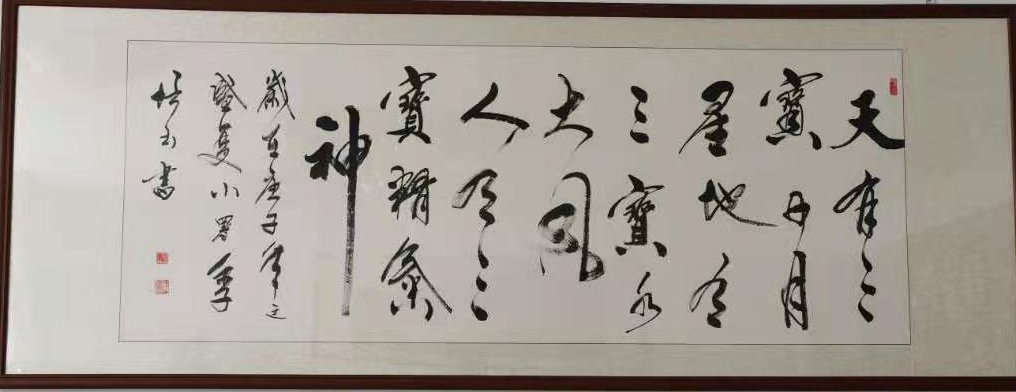 天有三
寶日月
星地有
三寶水
火风
人有三
寶精氣
神
歲在庚子年之
盛夏小暑季
培玉書